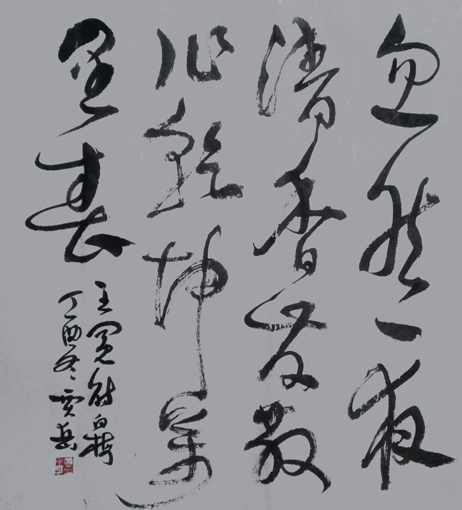 忽然一夜
清香发散
作乾坤萬
里春
王冕詩白梅
丁酉冬 贾岳